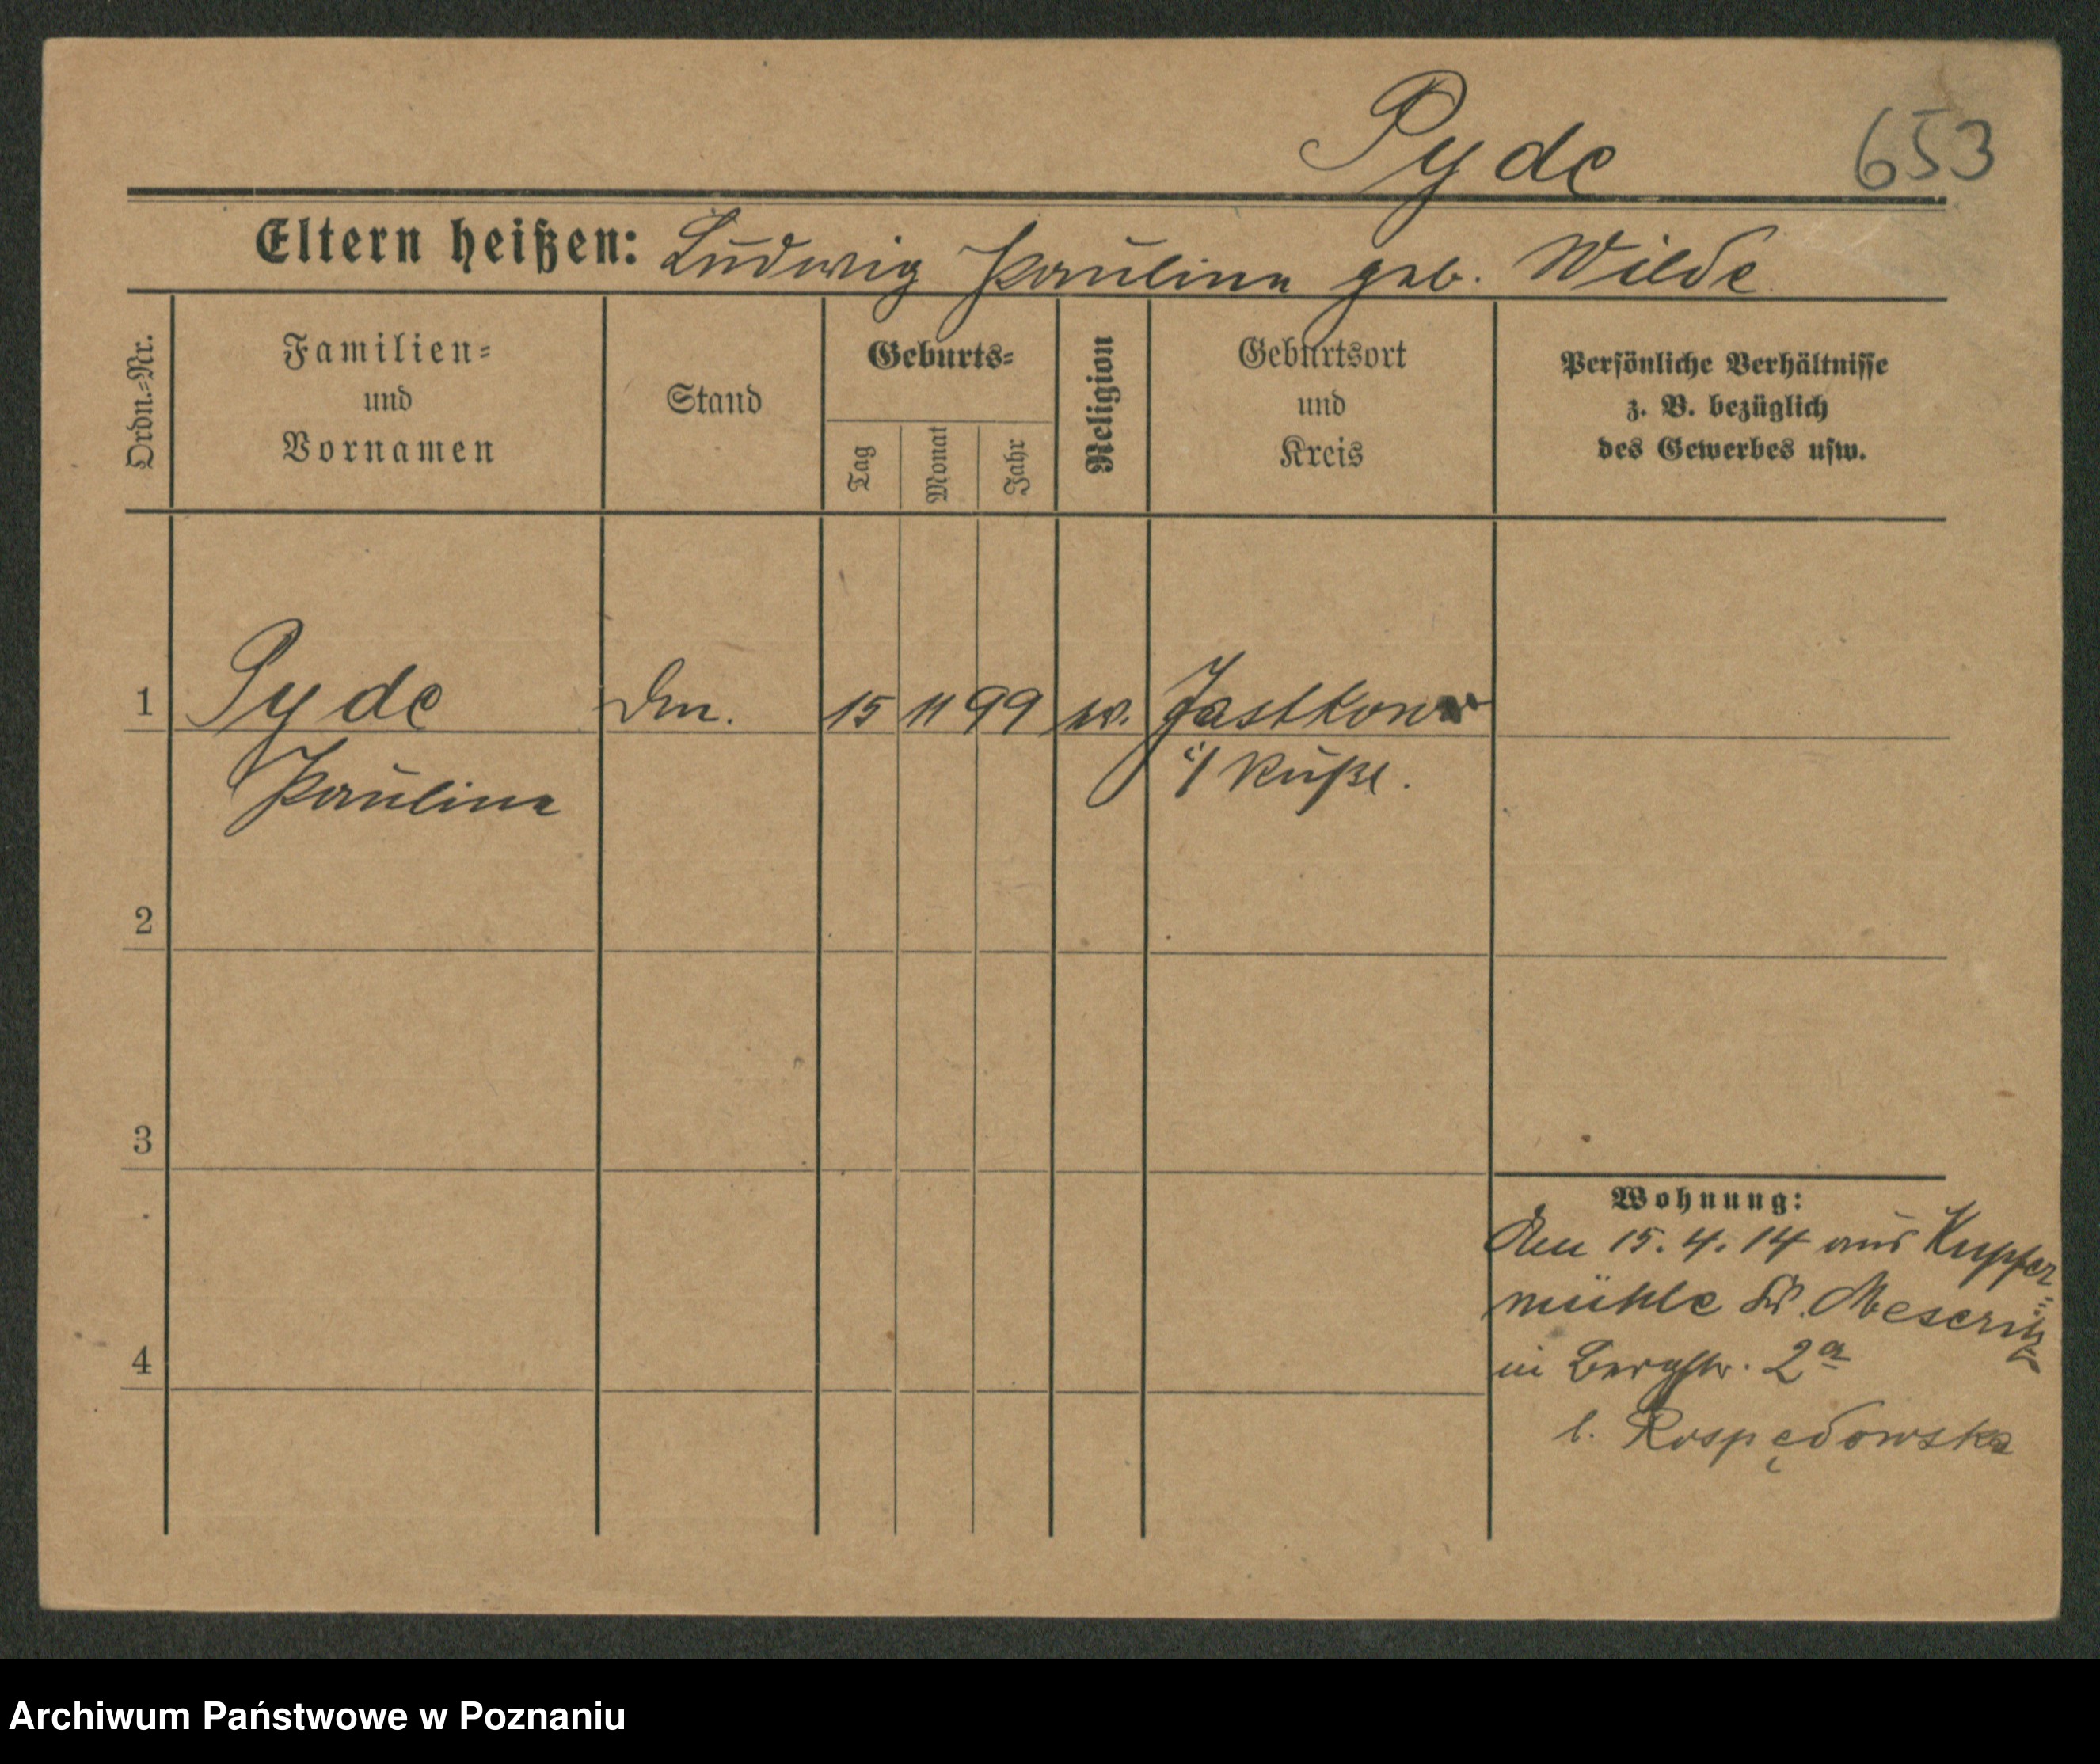 Pyde 653
Eltern heißen: Ludwig Pauline geb. Wilde
Ordn.-Nr. Familien- und Vornamen Stand Geburts- Tag Monat Jahr Religion Geburtsort und Kreis Persönliche Verhältnisse z. B. bezüglich des Gewerbes usw.
1 Pyde 15 11 99 Jastkow
Pauline i/ Rußl.
2
3
Wohnung:
Den 15.4.14 aus Kupfer
mühle Kr. Meseritz
4 in Bergstr. 2a
b. Rospędowska
Archiwum Państwowe w Poznaniu